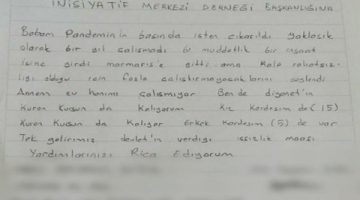 İNİSİYATİF MERKEZİ DERNEĞİ BAŞKANLIĞINA
Babam Pandeminin başında işten çıkarıldı Yaklaşık
olarak bir yıl çalışmadı bir müddetlik bir inşaat
işine girdi marmaris'e gitti ama Kalp rahatsız-
lığı olduğu için fazla çalıştıramayacaklarını söylendi
Annem ev hanımı çalışmıyor Ben de diyanet'in
Kuran Kursun da Kalıyorum Kız Kardeşim de (15)
Kuran Kursun da Kalıyor Erkek Kardeşim (5) de var
Tek gelirimiz devlet'in verdiği işsizlik maaşı
Yardımlarınızı Rica Ediyorum